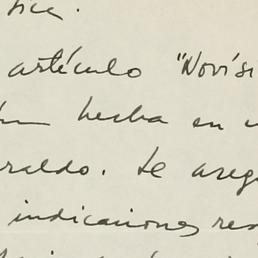 artículo "Novísi
hecha en u
raldo. Le aseg
indicaciones res